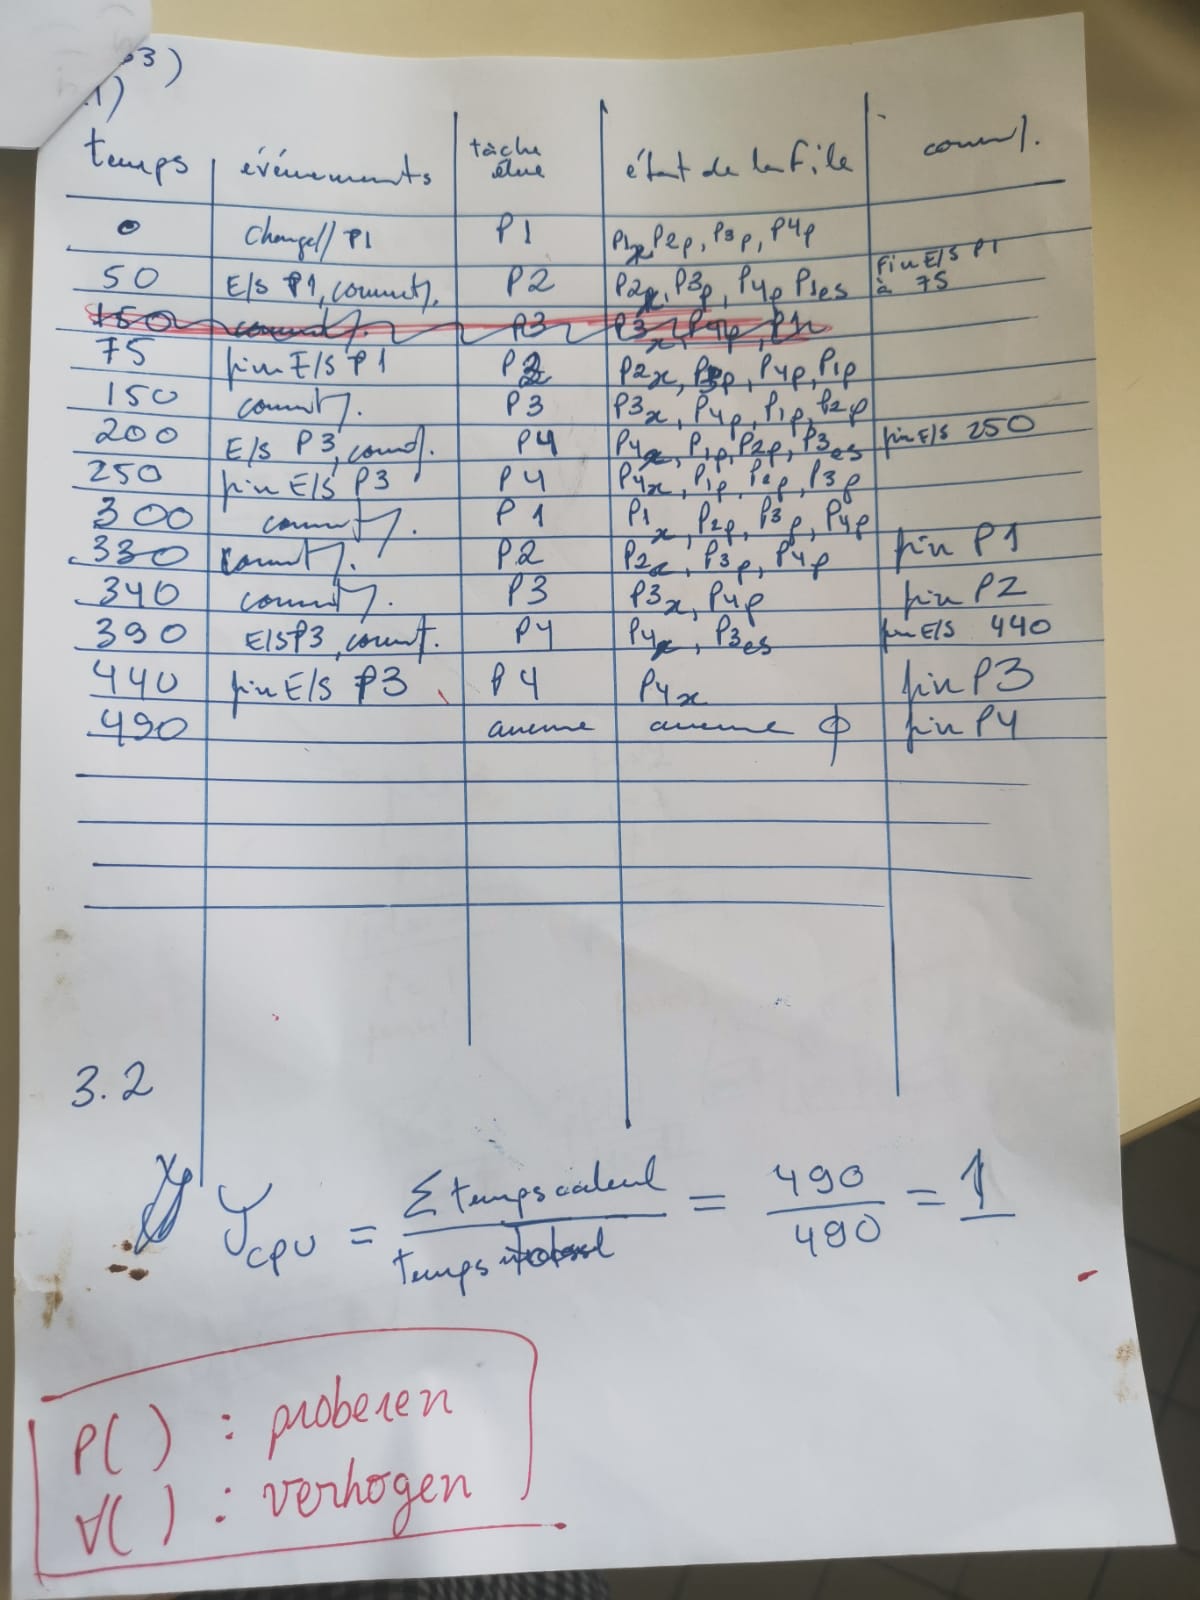 3)
1)
temps événements tâche élue état de la file comm/.
0 Charge// P1 P1 P1x, P2p, P3p, P4p
50 E/S P1, commut/. P2 P2x, P3p, P4p P1es Fin E/S P1 à 75
150 commut/. P3 P3x, P4p, P1x
75 fin E/S P1 P2 P2x, P3p, P4p, P1p
150 commut/. P3 P3x, P4p, P1p, P2p
200 E/S P3, commut/. P4 P4x, P1p, P2p, P3es fin E/S 250
250 fin E/S P3 P4 P4x, P1p, P2p, P3p
300 commut/. P1 P1x, P2p, P3p, P4p
330 commut/. P2 P2x, P3p, P4p fin P1
340 commut/. P3 P3x, P4p fin P2
390 E/S P3, commut. P4 P4x, P3es fin E/S 440
440 fin E/S P3 P4 P4x fin P3
490 aucune aucune ϕ fin P4
3.2
cpu = Σ temps calcul / temps total = 490 / 490 = 1
P( ) : proberen
V( ) : verhogen